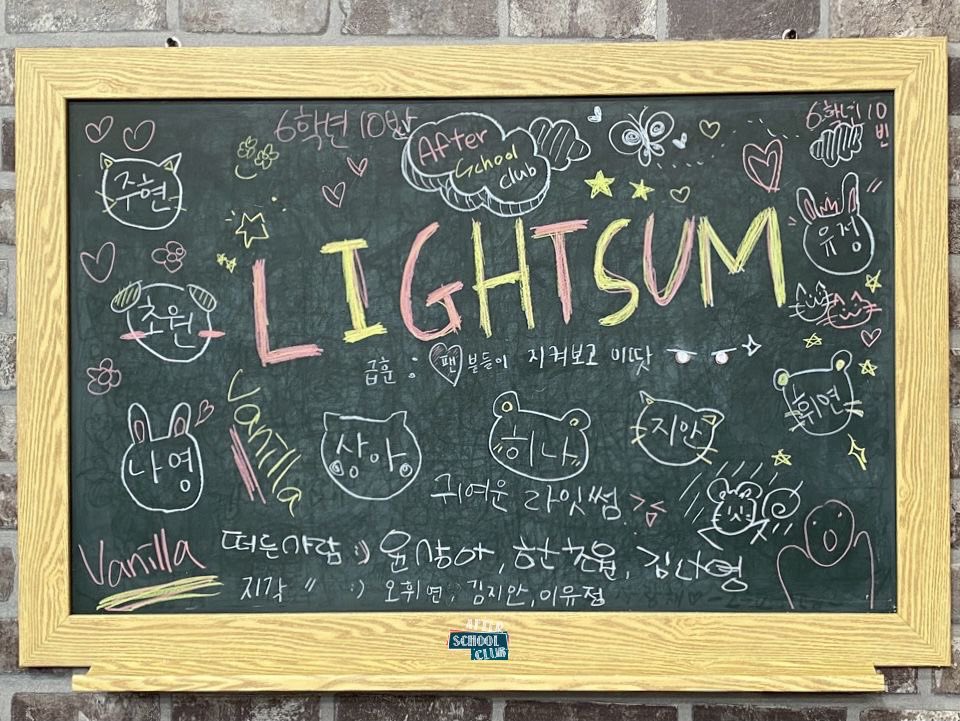 6학년 10반
6학년 10
빈
After
School
club
주현
유정
LIGHTSUM
초원
급훈 : 팬 분들이 지켜보고 이따
휘연
Vanilla
나영
상아
히나
지안
귀여운 라잇썸
Vanilla
떠든사람 :) 윤상아, 한초원, 김나영
지각 〃 :) 오휘연, 김지안, 이유정
AFTER
SCHOOL
CLUB